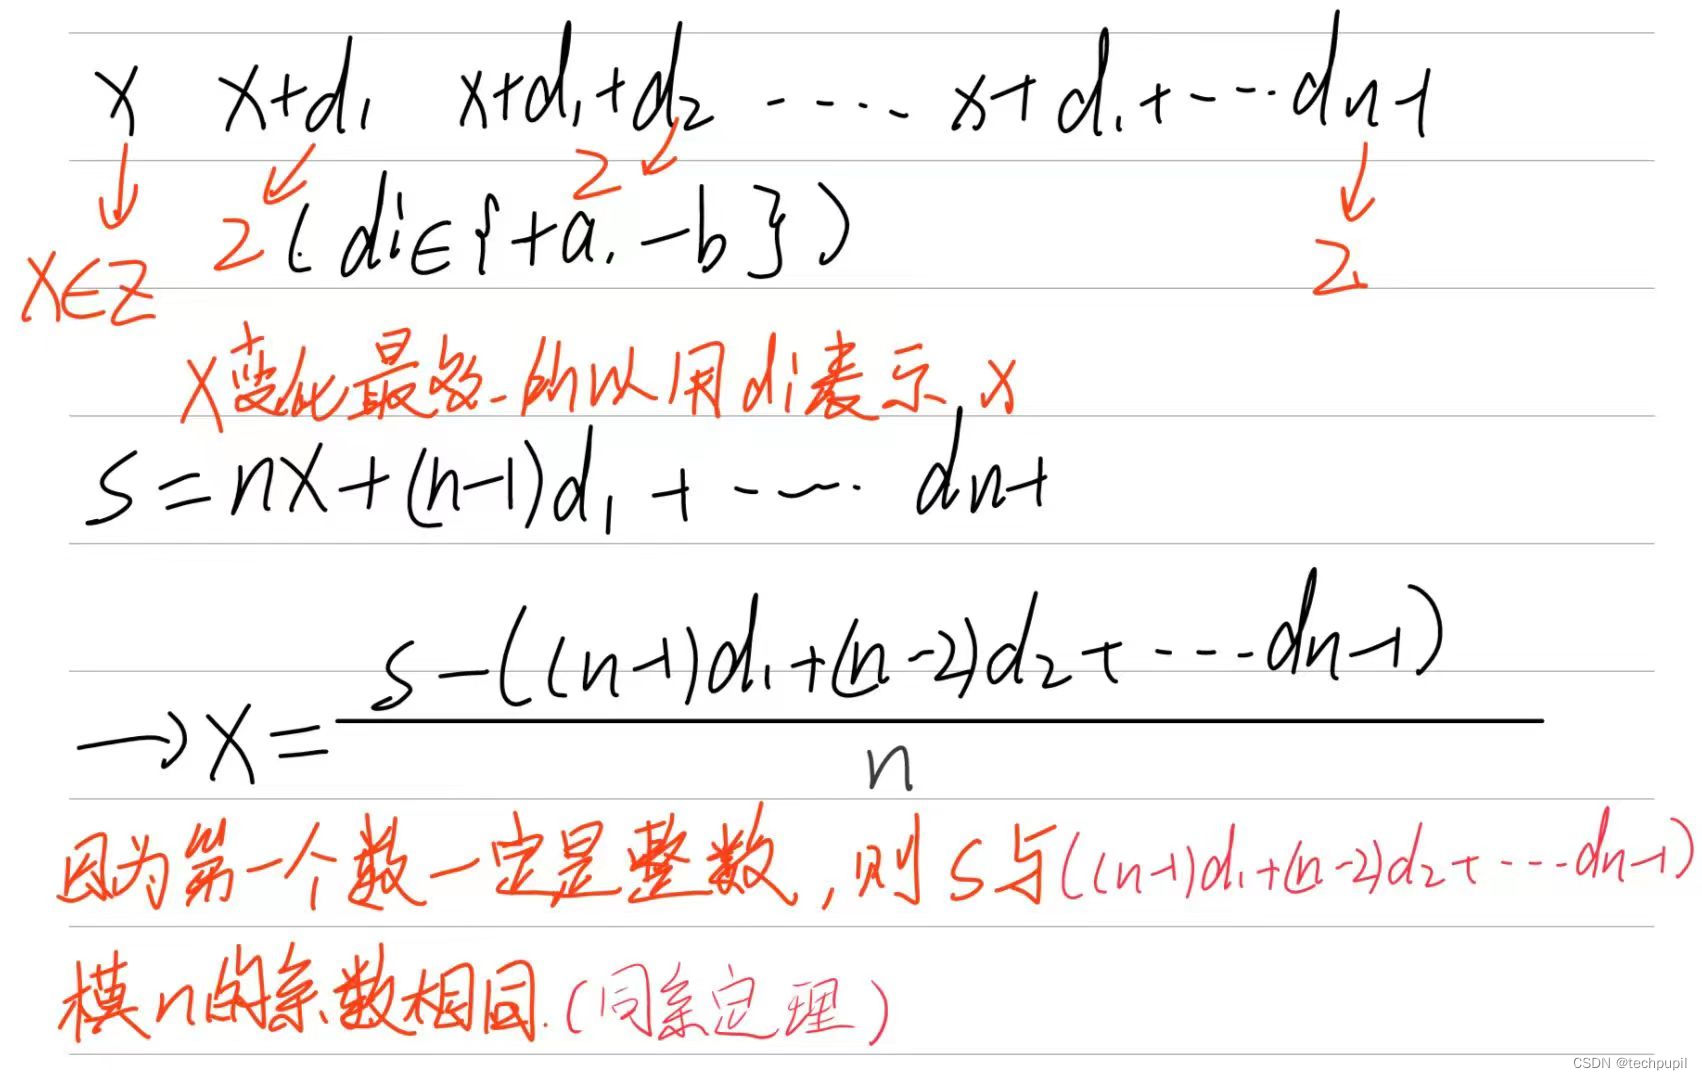 x x+d₁ x+d₁+d₂ ----- x+d₁+---dn-1
2 2 2
x∈Z (di∈{+a,-b})
x变化最多-所以用di表示x
S=nx+(n-1)d₁+----dn-1
→x=\frac{S-((n-1)d₁+(n-2)d₂+---dn-1)}{n}
因为第一个数一定是整数,则S与((n-1)d₁+(n-2)d₂+---dn-1)
模n的余数相同.(同余定理)
CSDN @techpupil